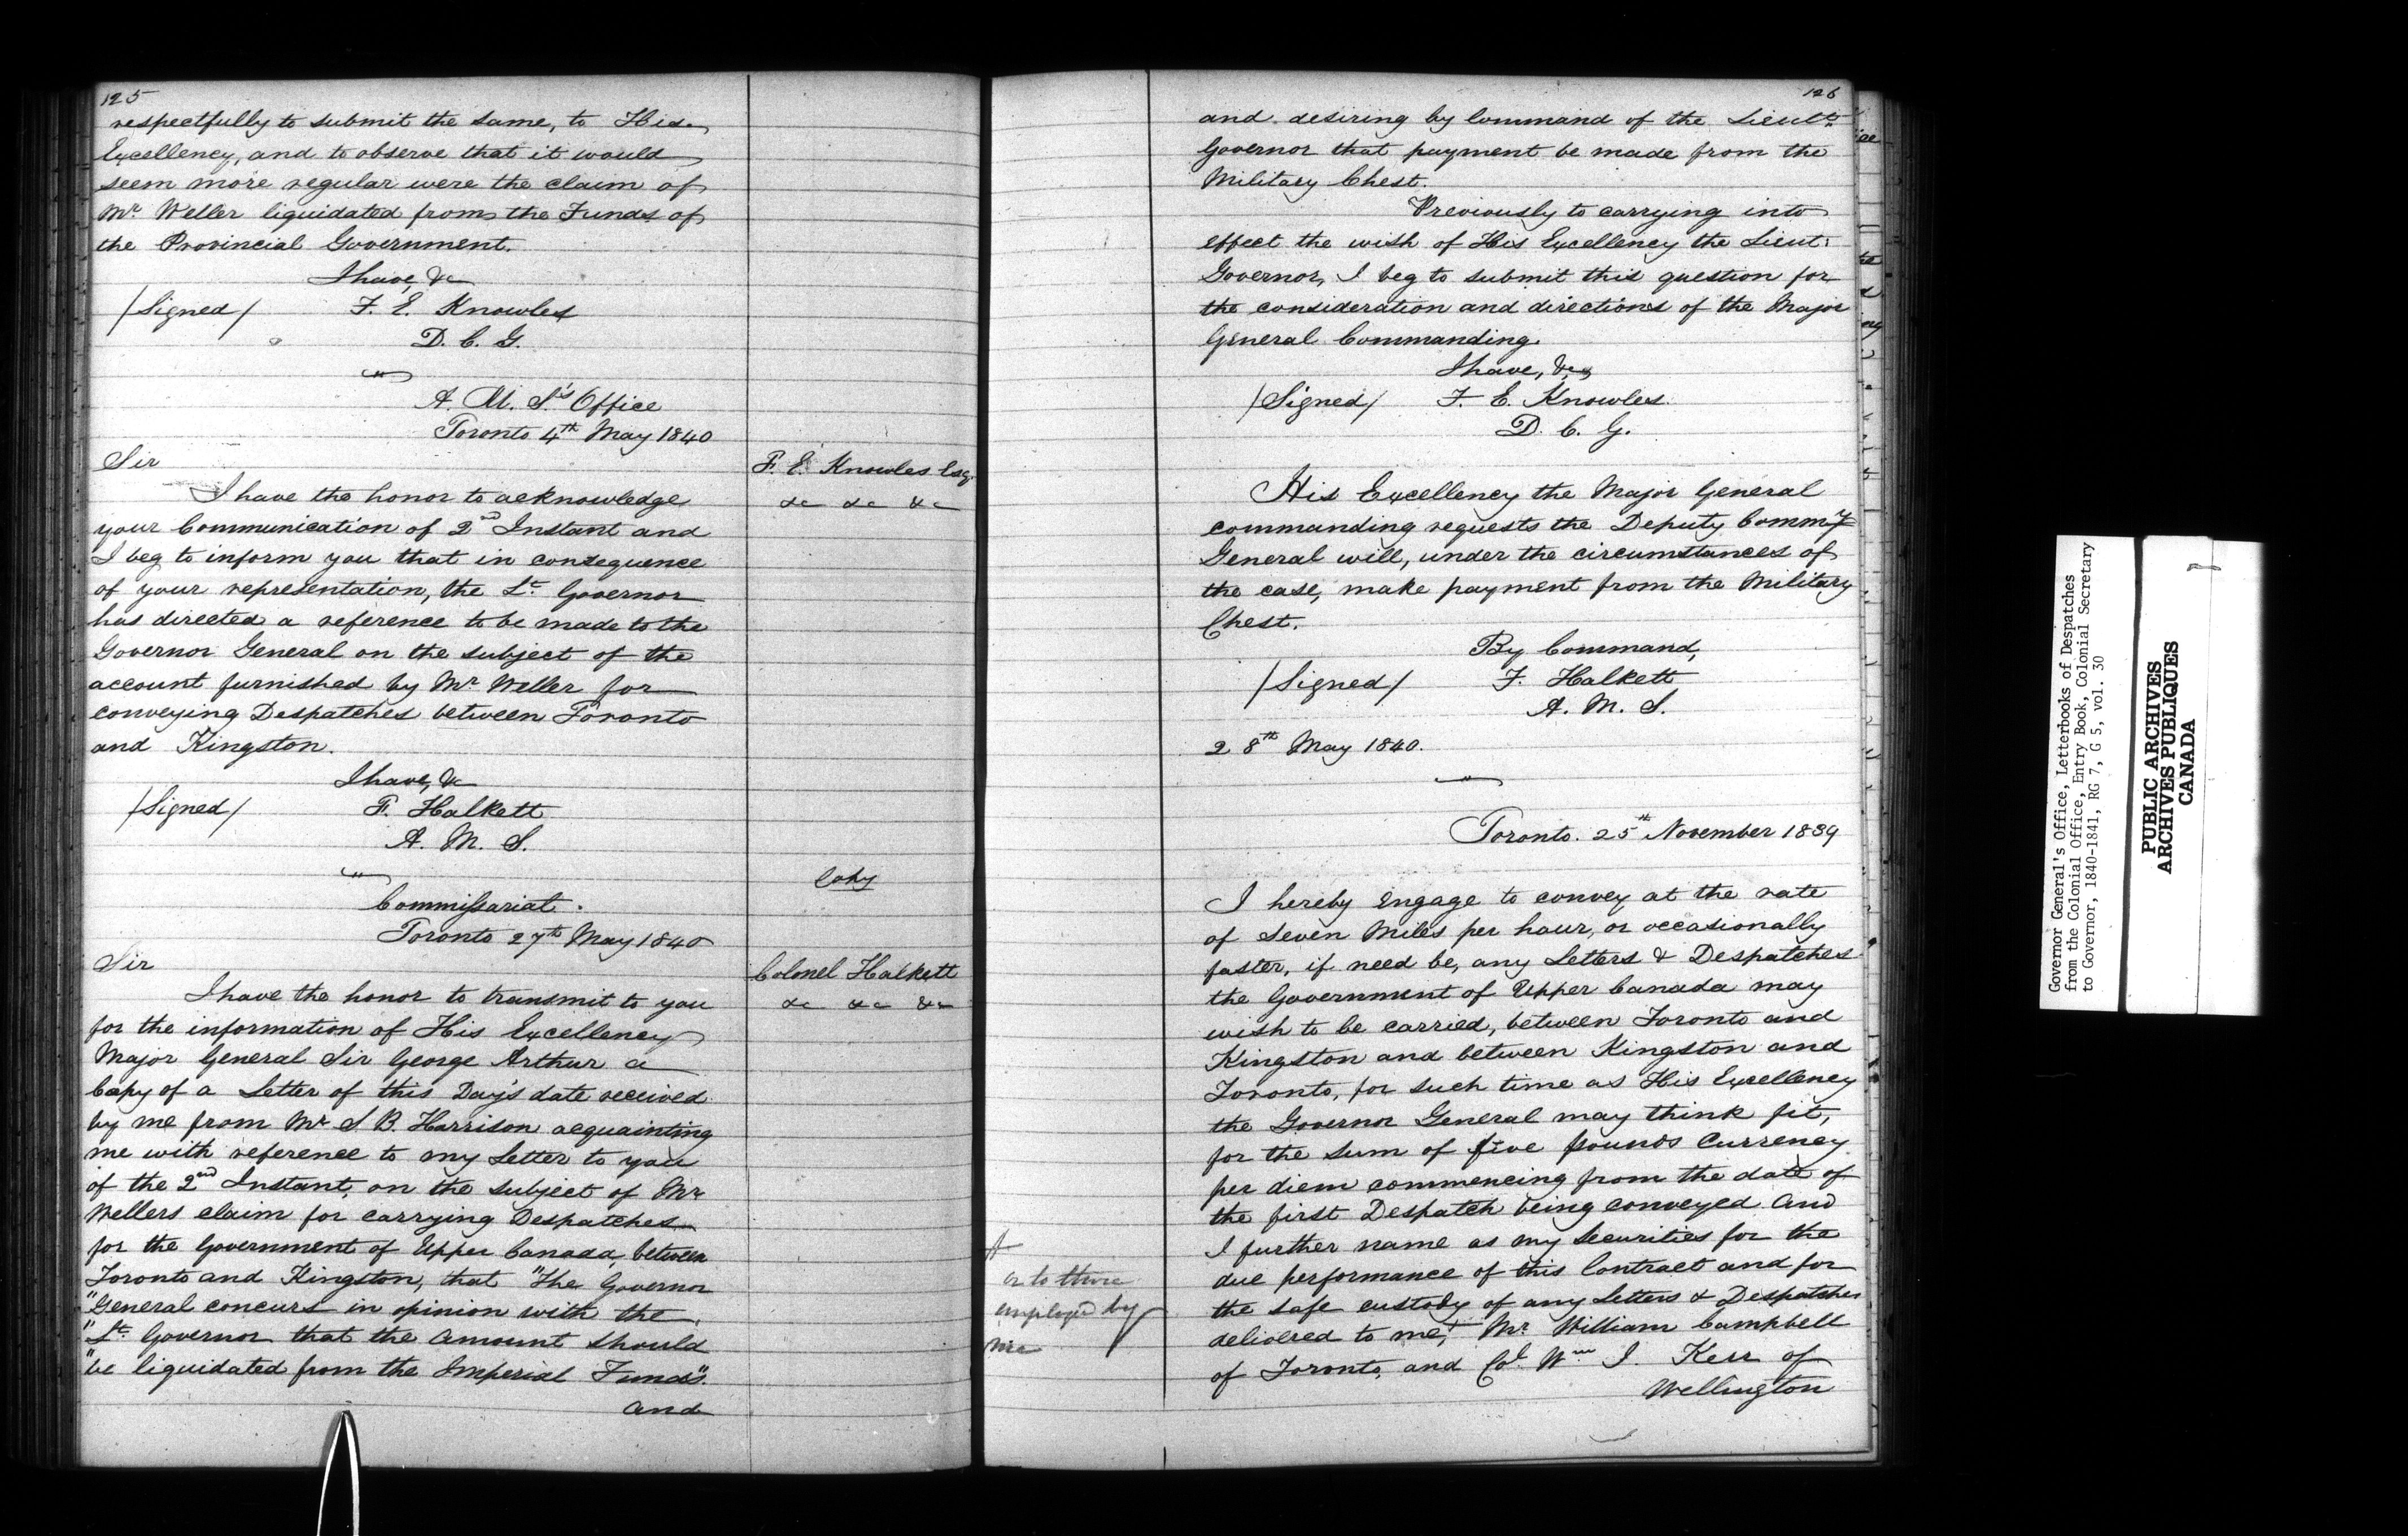 125
respectfully to submit the same, to His
Excellency, and to observe that it would
seem more regular were the claim of
Mr Weller liquidated from the Funds of
the Provincial Government.
I have, &c
/Signed/ F. E. Knowles
D. C. G.
A. M. S's Office
Toronto 4th May 1840
Sir
F. E. Knowles Esq
&c &c &c
I have the honor to acknowledge
your Communication of 2nd Instant and
I beg to inform you that in consequence
of your representation, the Lt Governor
has directed a reference to be made to the
Governor General on the subject of the
account furnished by Mr Weller for
conveying Despatches between Toronto
and Kingston.
I have, &c
/Signed/ F. Halkett
A. M. S.
Copy
Commissariat.
Toronto 27th May 1840
Sir
Colonel Halkett
&c &c &c
I have the honor to transmit to you
for the information of His Excellency
Major General Sir George Arthur a
Copy of a Letter of this Day's date received
by me from Mr S. B. Harrison acquainting
me with reference to my Letter to you
of the 2nd Instant, on the subject of Mr
Wellers claim for carrying Despatches
for the Government of Upper Canada, between
Toronto and Kingston, that "The Governor
"General concurs in opinion with the
"Lt Governor that the amount should
"be liquidated from the Imperial Funds".
and
126
and desiring by Command of the Lieutt
Governor that payment be made from the
Military Chest.
Previously to carrying into
effect the wish of His Excellency the Lieut:
Governor, I beg to submit this question for
the consideration and directions of the Major
General Commanding.
I have, &c,
/Signed/ F. E. Knowles
D. C. G.
His Excellency the Major General
commanding requests the Deputy Commy
General will, under the circumstances of
the case, make payment from the Military
Chest.
By Command,
/Signed/ F. Halkett
A. M. S.
28th May 1840.
Toronto. 25th November 1839
I hereby engage to convey at the rate
of Seven Miles per hour, or occasionally
faster, if need be, any Letters & Despatches
the Government of Upper Canada may
wish to be carried, between Toronto and
Kingston and between Kingston and
Toronto, for such time as His Excellency
the Governor General may think fit,
for the sum of five pounds Currency
per diem commencing from the date of
the first Despatch being conveyed and
I further name as my Securities for the
due performance of this Contract and for
the safe custody of any Letters & Despatches
delivered to me,+ Mr William Campbell
of Toronto, and Col Wm J. Kerr of
Wellington
+
or to those
employed by
me
Governor General's Office, Letterbooks of Despatches
from the Colonial Office, Entry Book, Colonial Secretary
to Governor, 1840-1841, RG 7, G 5, vol. 30
PUBLIC ARCHIVES
ARCHIVES PUBLIQUES
CANADA